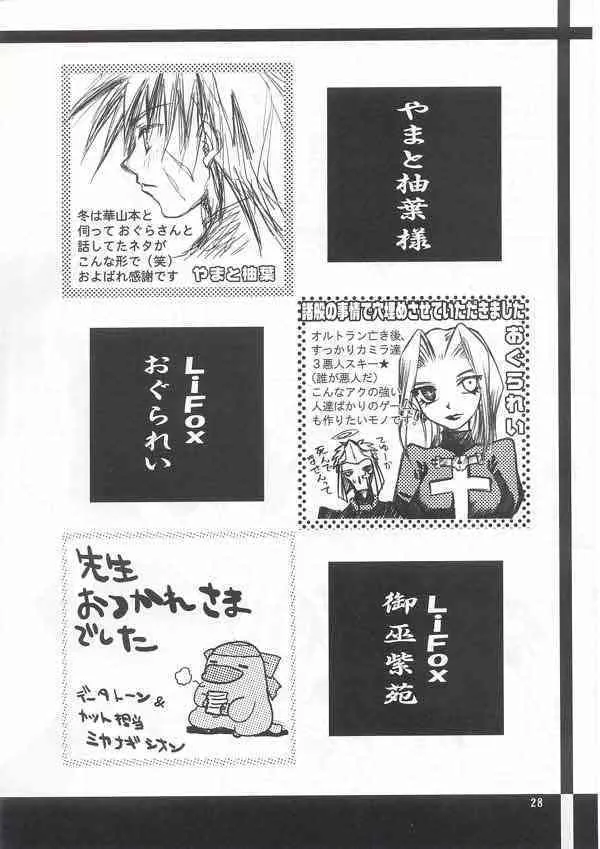 やまと柚葉様
冬は華山本と
伺って おぐらさんと
話してたネタが
こんな形で(笑)
およばれ感謝です
やまと柚葉
諸般の事情で穴埋めさせていただきました
おぐられい
オルトラン亡き後、
すっかりカミラ達
3悪人スキー★
(誰が悪人だ)
こんなアクの強い
人達ばかりのゲーム
も作りたいモノです!
てゆーか
死んで
ませんって
LiFox
おぐられい
先生
おつかれさま
でした
データトーン&
カット担当
ミカナギシオン
LiFox
御巫紫苑
28